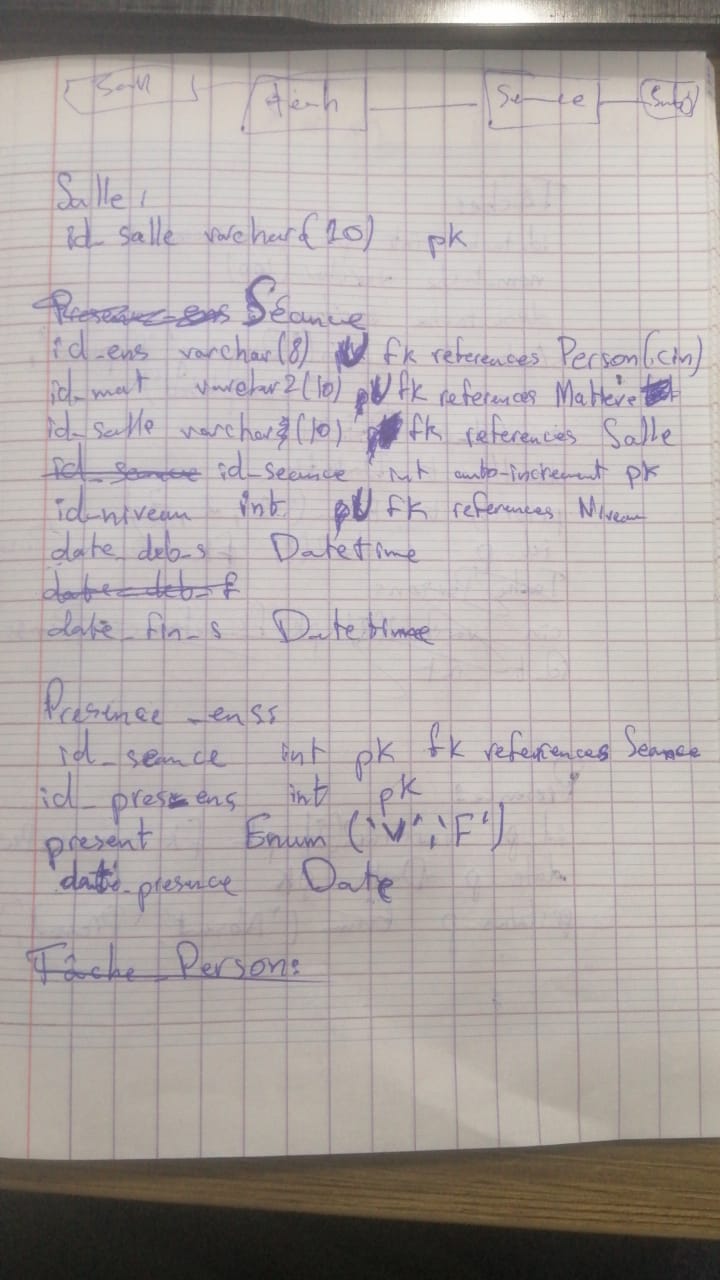 Sall
Seance
Salle :
id_salle varchar(10) pk
Presence_ens Séance
id_ens varchar(8) fk references Person(cin)
id_mat varchar2(10) fk references Matiere
id_salle varchar2(10) fk references Salle
id_seance id_seance int auto-increment pk
id_niveau int fk references Niveau
date_deb_s Datetime
date_deb_f
date_fin_s Datetime
Presence_enss
id_seance int pk fk references Seance
id_pres_ens int pk
present Enum ('V','F')
date_presence Date
Tâche_Person: